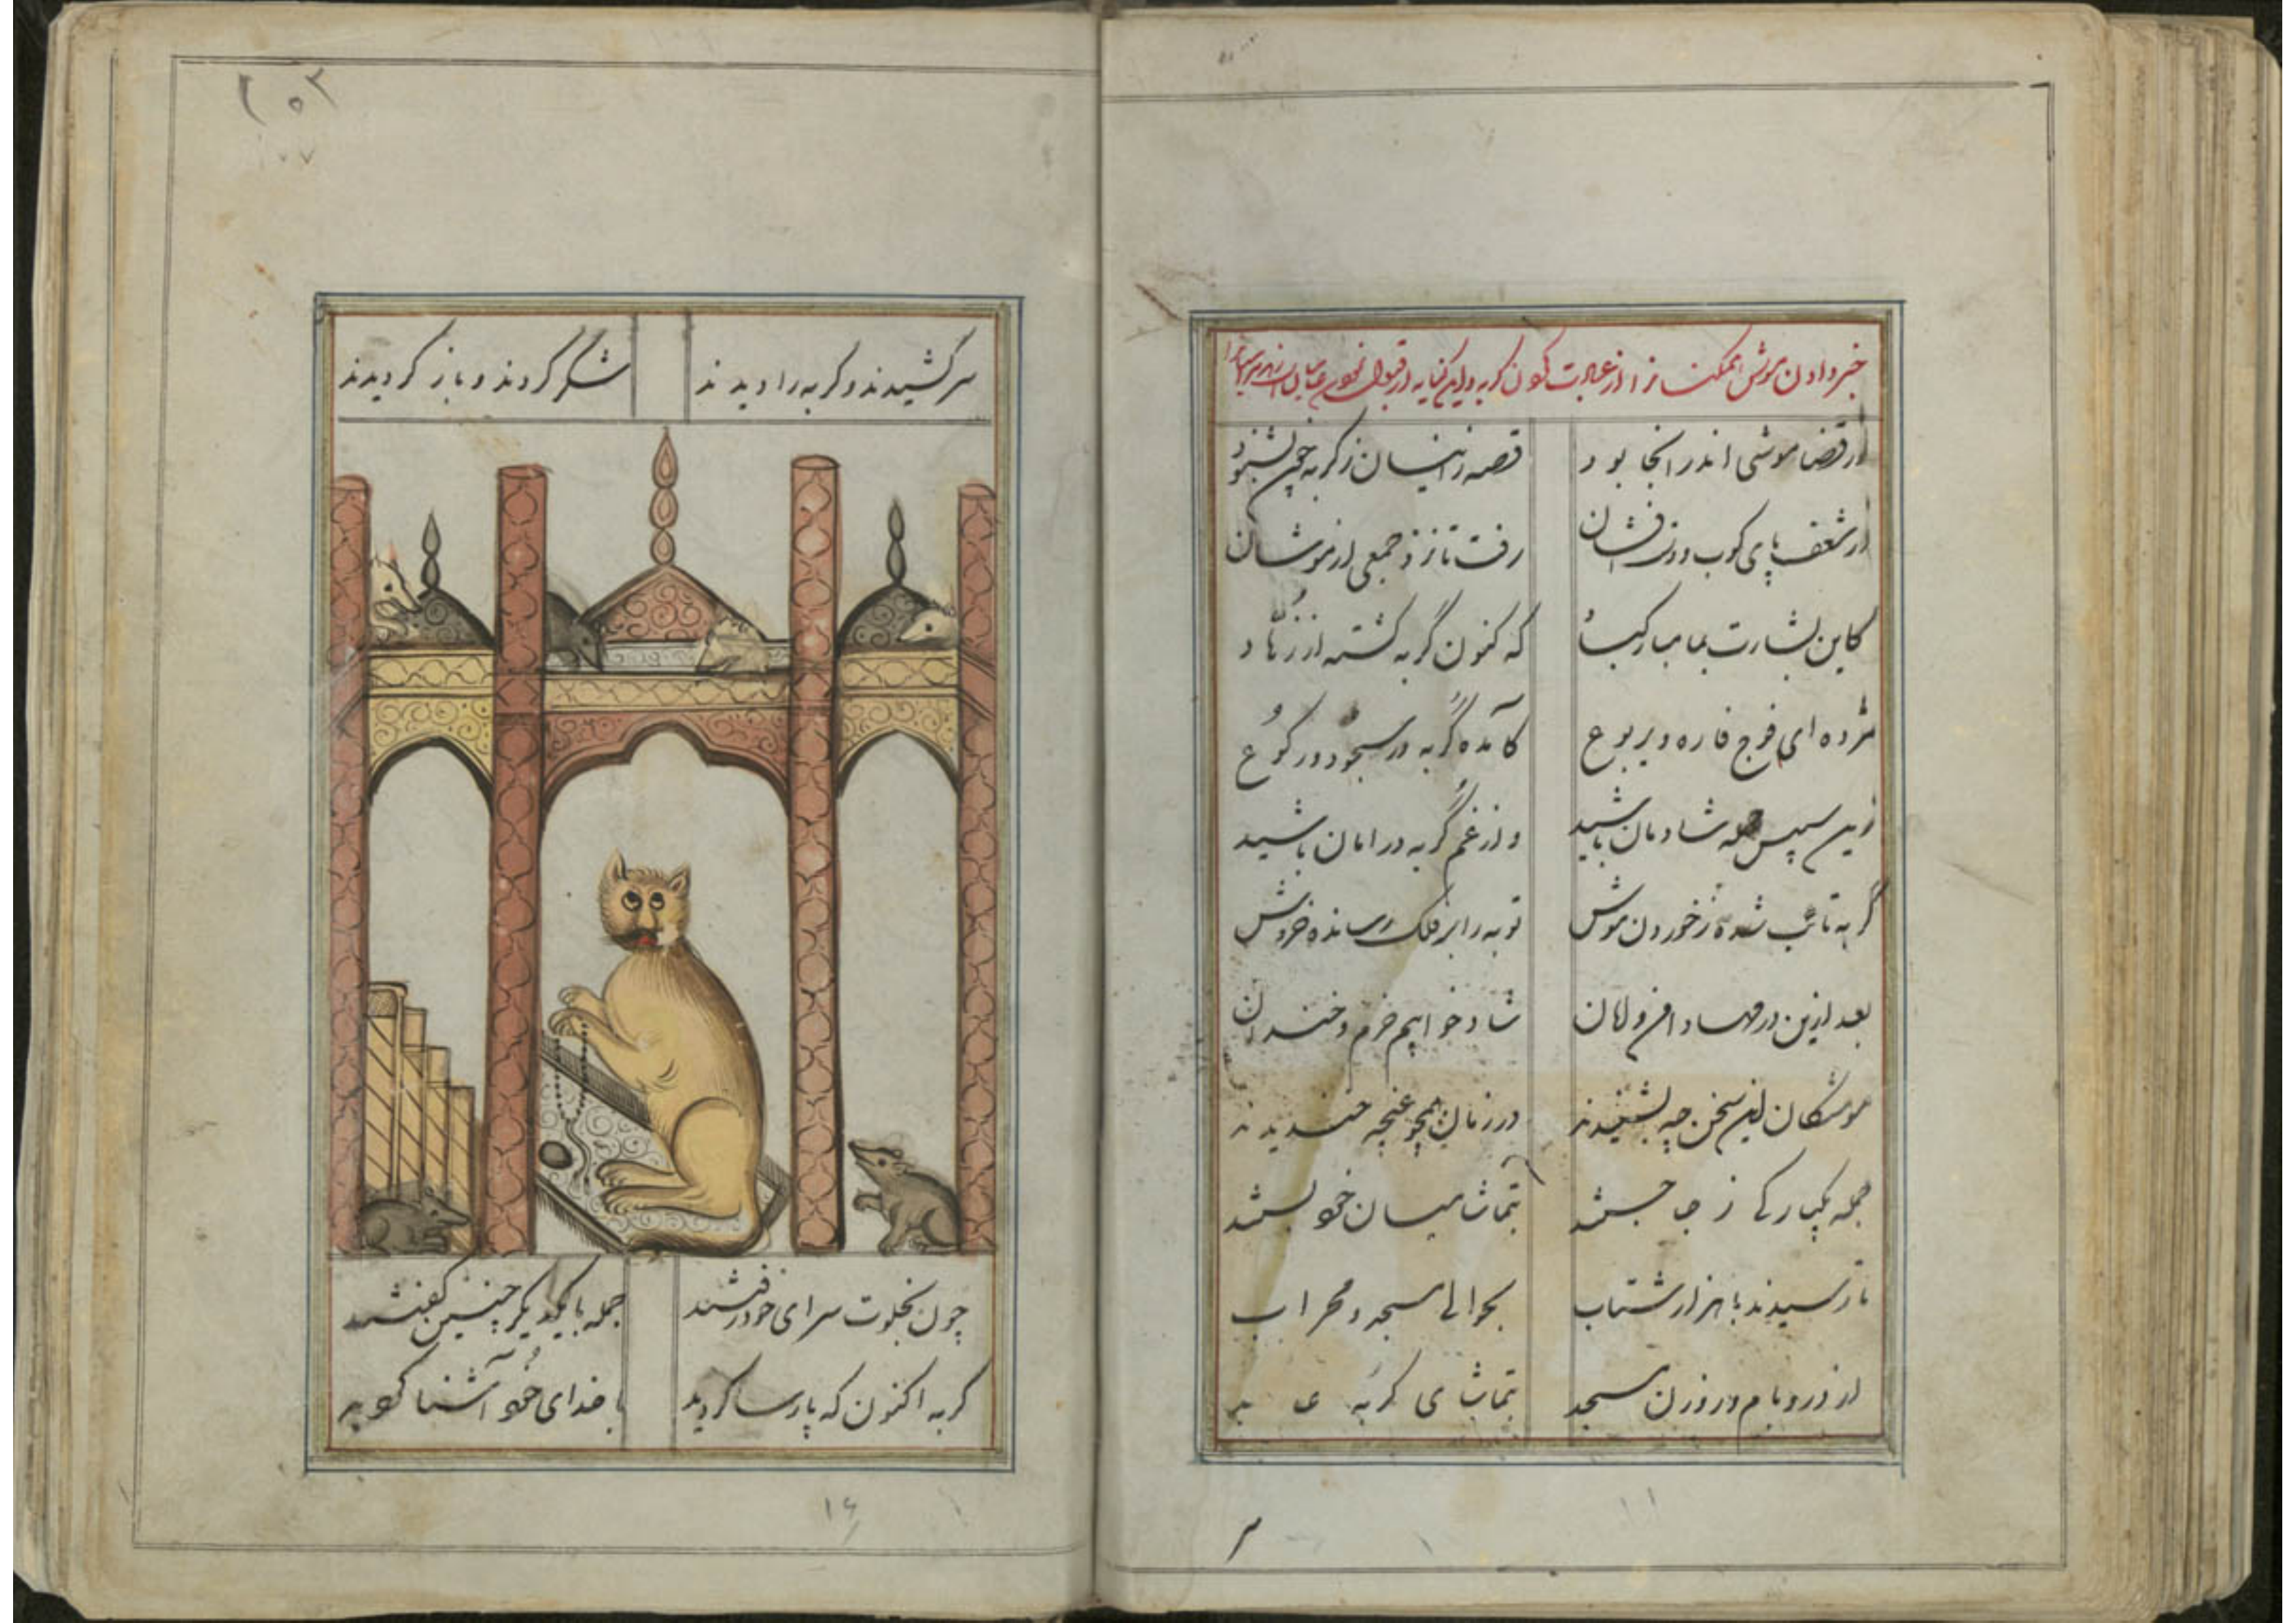 خبر دادن موش
از قضا موشی اندر آنجا بود قصه زینسان ز گربه چون بشنود
از شعف پای کوب و دست فشان رفت تا نزد جمعی از موشان
کاین بشارت بما مبارکباد که کنون گربه گشته از زهاد
مژده ای فوج فاره و یربوع کآمده گربه در سجود و رکوع
زین سپس جمله شادمان باشید وز غم گربه در امان باشید
گربه تائب شده ز خوردن موش توبه را بر فلک رسانده خروش
بعد ازین در مهاد امن و امان شاد خوابیم خرم و خندان
موشکان این سخن چه بشنیدند در زمان همچو غنچه خندیدند
جمله یکبارگی ز جا جستند بتماشا میان خود بستند
تا رسیدند با هزار شتاب بحوالی مسجد و محراب
از در و بام و روزن مسجد بتماشای گربه عابد
سر کشیدند و گربه را دیدند شکر کردند و باز گردیدند
چون بخلوت سرای خود رفتند جمله با یکدیگر چنین گفتند
گربه اکنون که پارسا گردید با خدای خود آشنا گردید
۲۵۳
۷۷
۱۶
۱۱